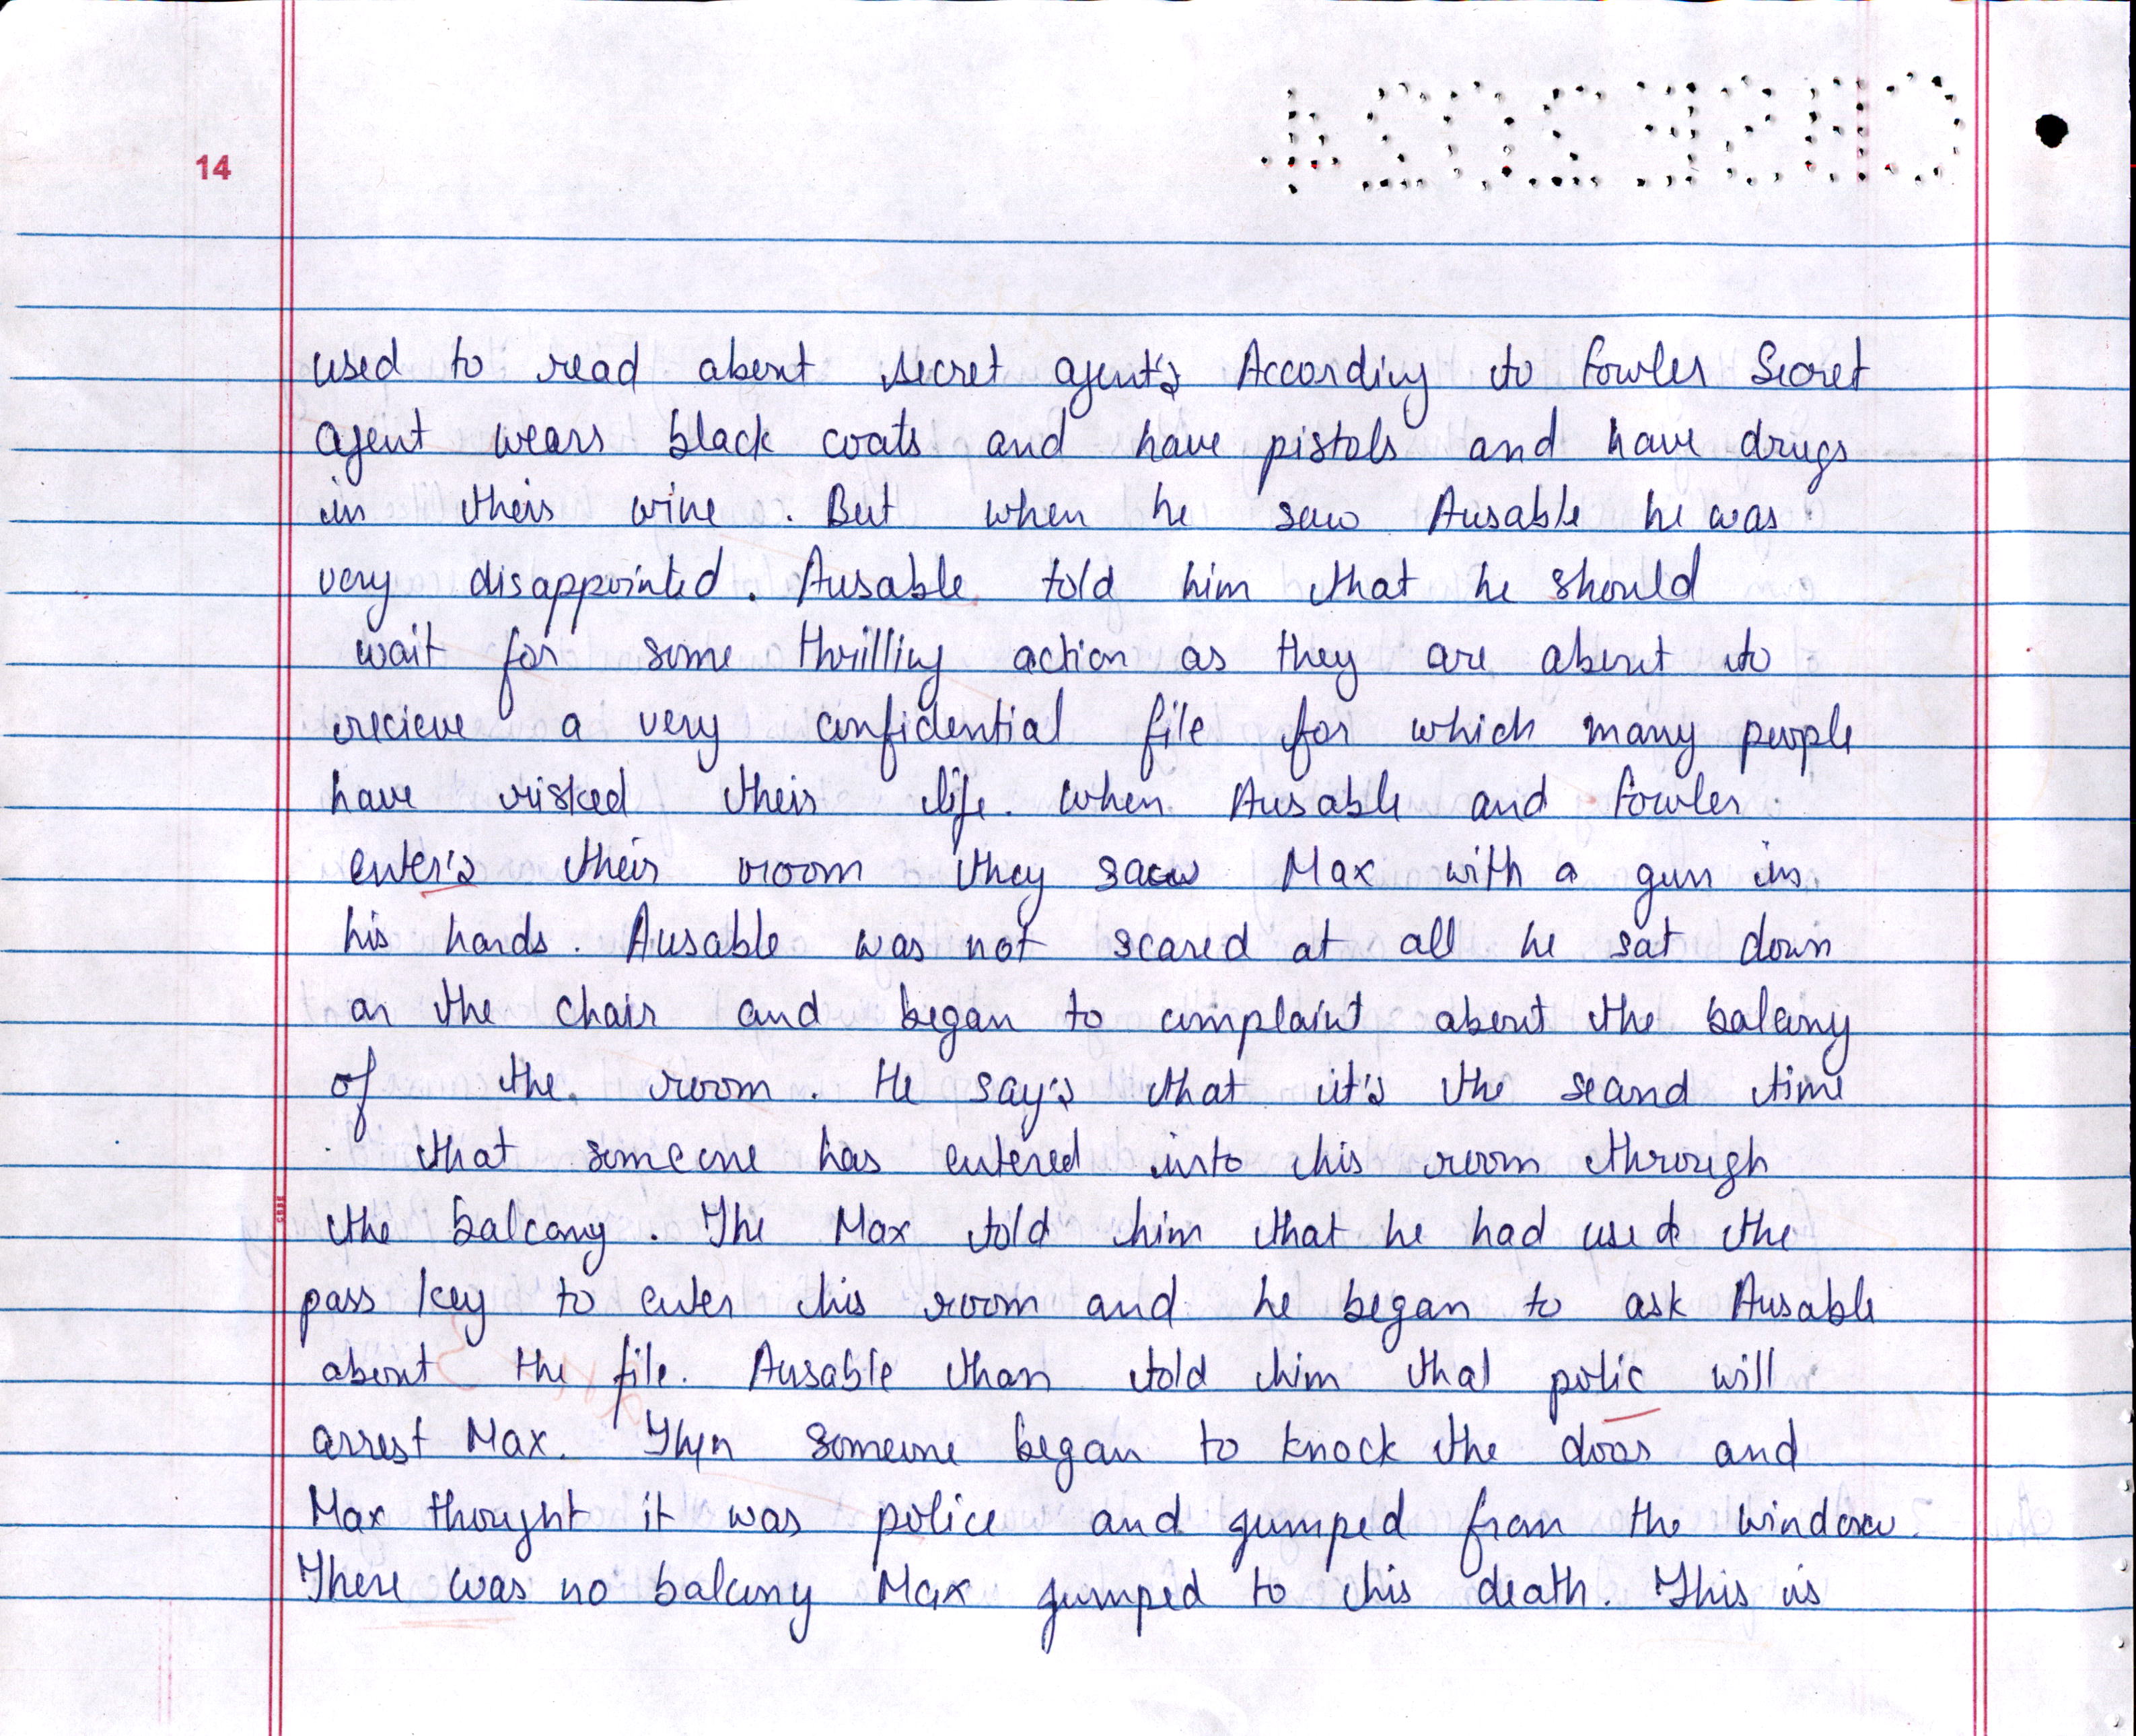 14
used to read about secret agent's According to Fowler Secret
agent wears black coats and have pistols and have drugs
in their wine . But when he saw Ausable he was
very disappointed. Ausable told him that he should
wait for some thrilling action as they are about to
recieve a very confidential file for which many people
have risked their life. When Ausable and Fowler
enter's their room they saw Max with a gun in
his hands. Ausable was not scared at all he sat down
on the chair and began to complaint about the balcony
of the room. He say's that it's the second time
that someone has entered into his room through
the balcony. The Max told him that he had used the
pass key to enter his room and he began to ask Ausable
about the file. Ausable than told him that polic will
arrest Max. Then someone began to knock the door and
Max thought it was police and jumped from the window.
There was no balcony Max jumped to his death. This is